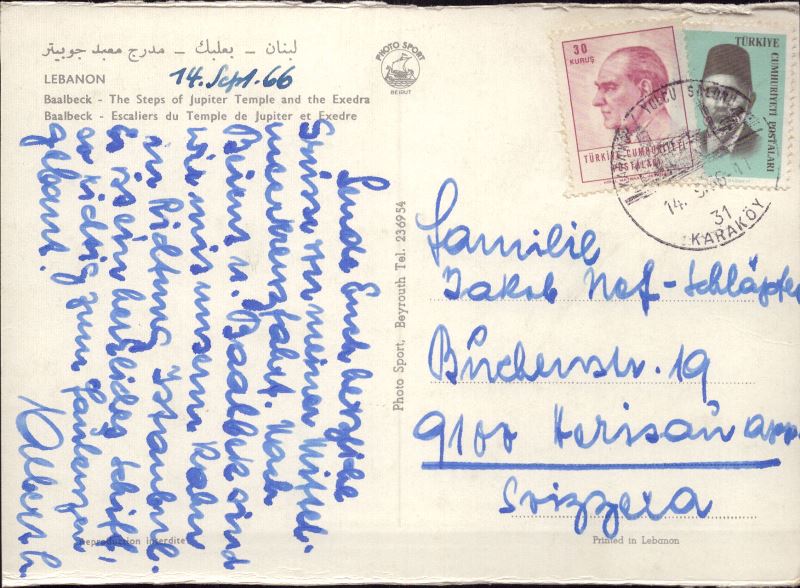 لبنان - بعلبك - مدرج معبد جوبيتر
LEBANON
14. Sept. 66
Baalbeck - The Steps of Jupiter Temple and the Exedra
Baalbeck - Escaliers du Temple de Jupiter et Exedre
PHOTO SPORT
BEIRUT
Sende Euch herzliche
Grüsse von meiner Mittel-
meerkreuzfahrt. Nach
Beirut u. Baalbek sind
wir mit unserm Kahn
in Richtung Istanbul.
Es ist ein herrliches Schiff,
so richtig zum faulenzen
gebaut.
Albert
Photo Sport, Beyrouth Tel. 236954
30
KURUŞ
TÜRKİYE CUMHURİYETİ
POSTALARI
TÜRKİYE
CUMHURİYETİ POSTALARI
YOLCU SALONU
14.
31
KARAKÖY
Familie
Jakob Nef-Schläpfer
Buchenstr. 19
9100 Herisau App.
Svizzera
Reproduction interdite
Printed in Lebanon